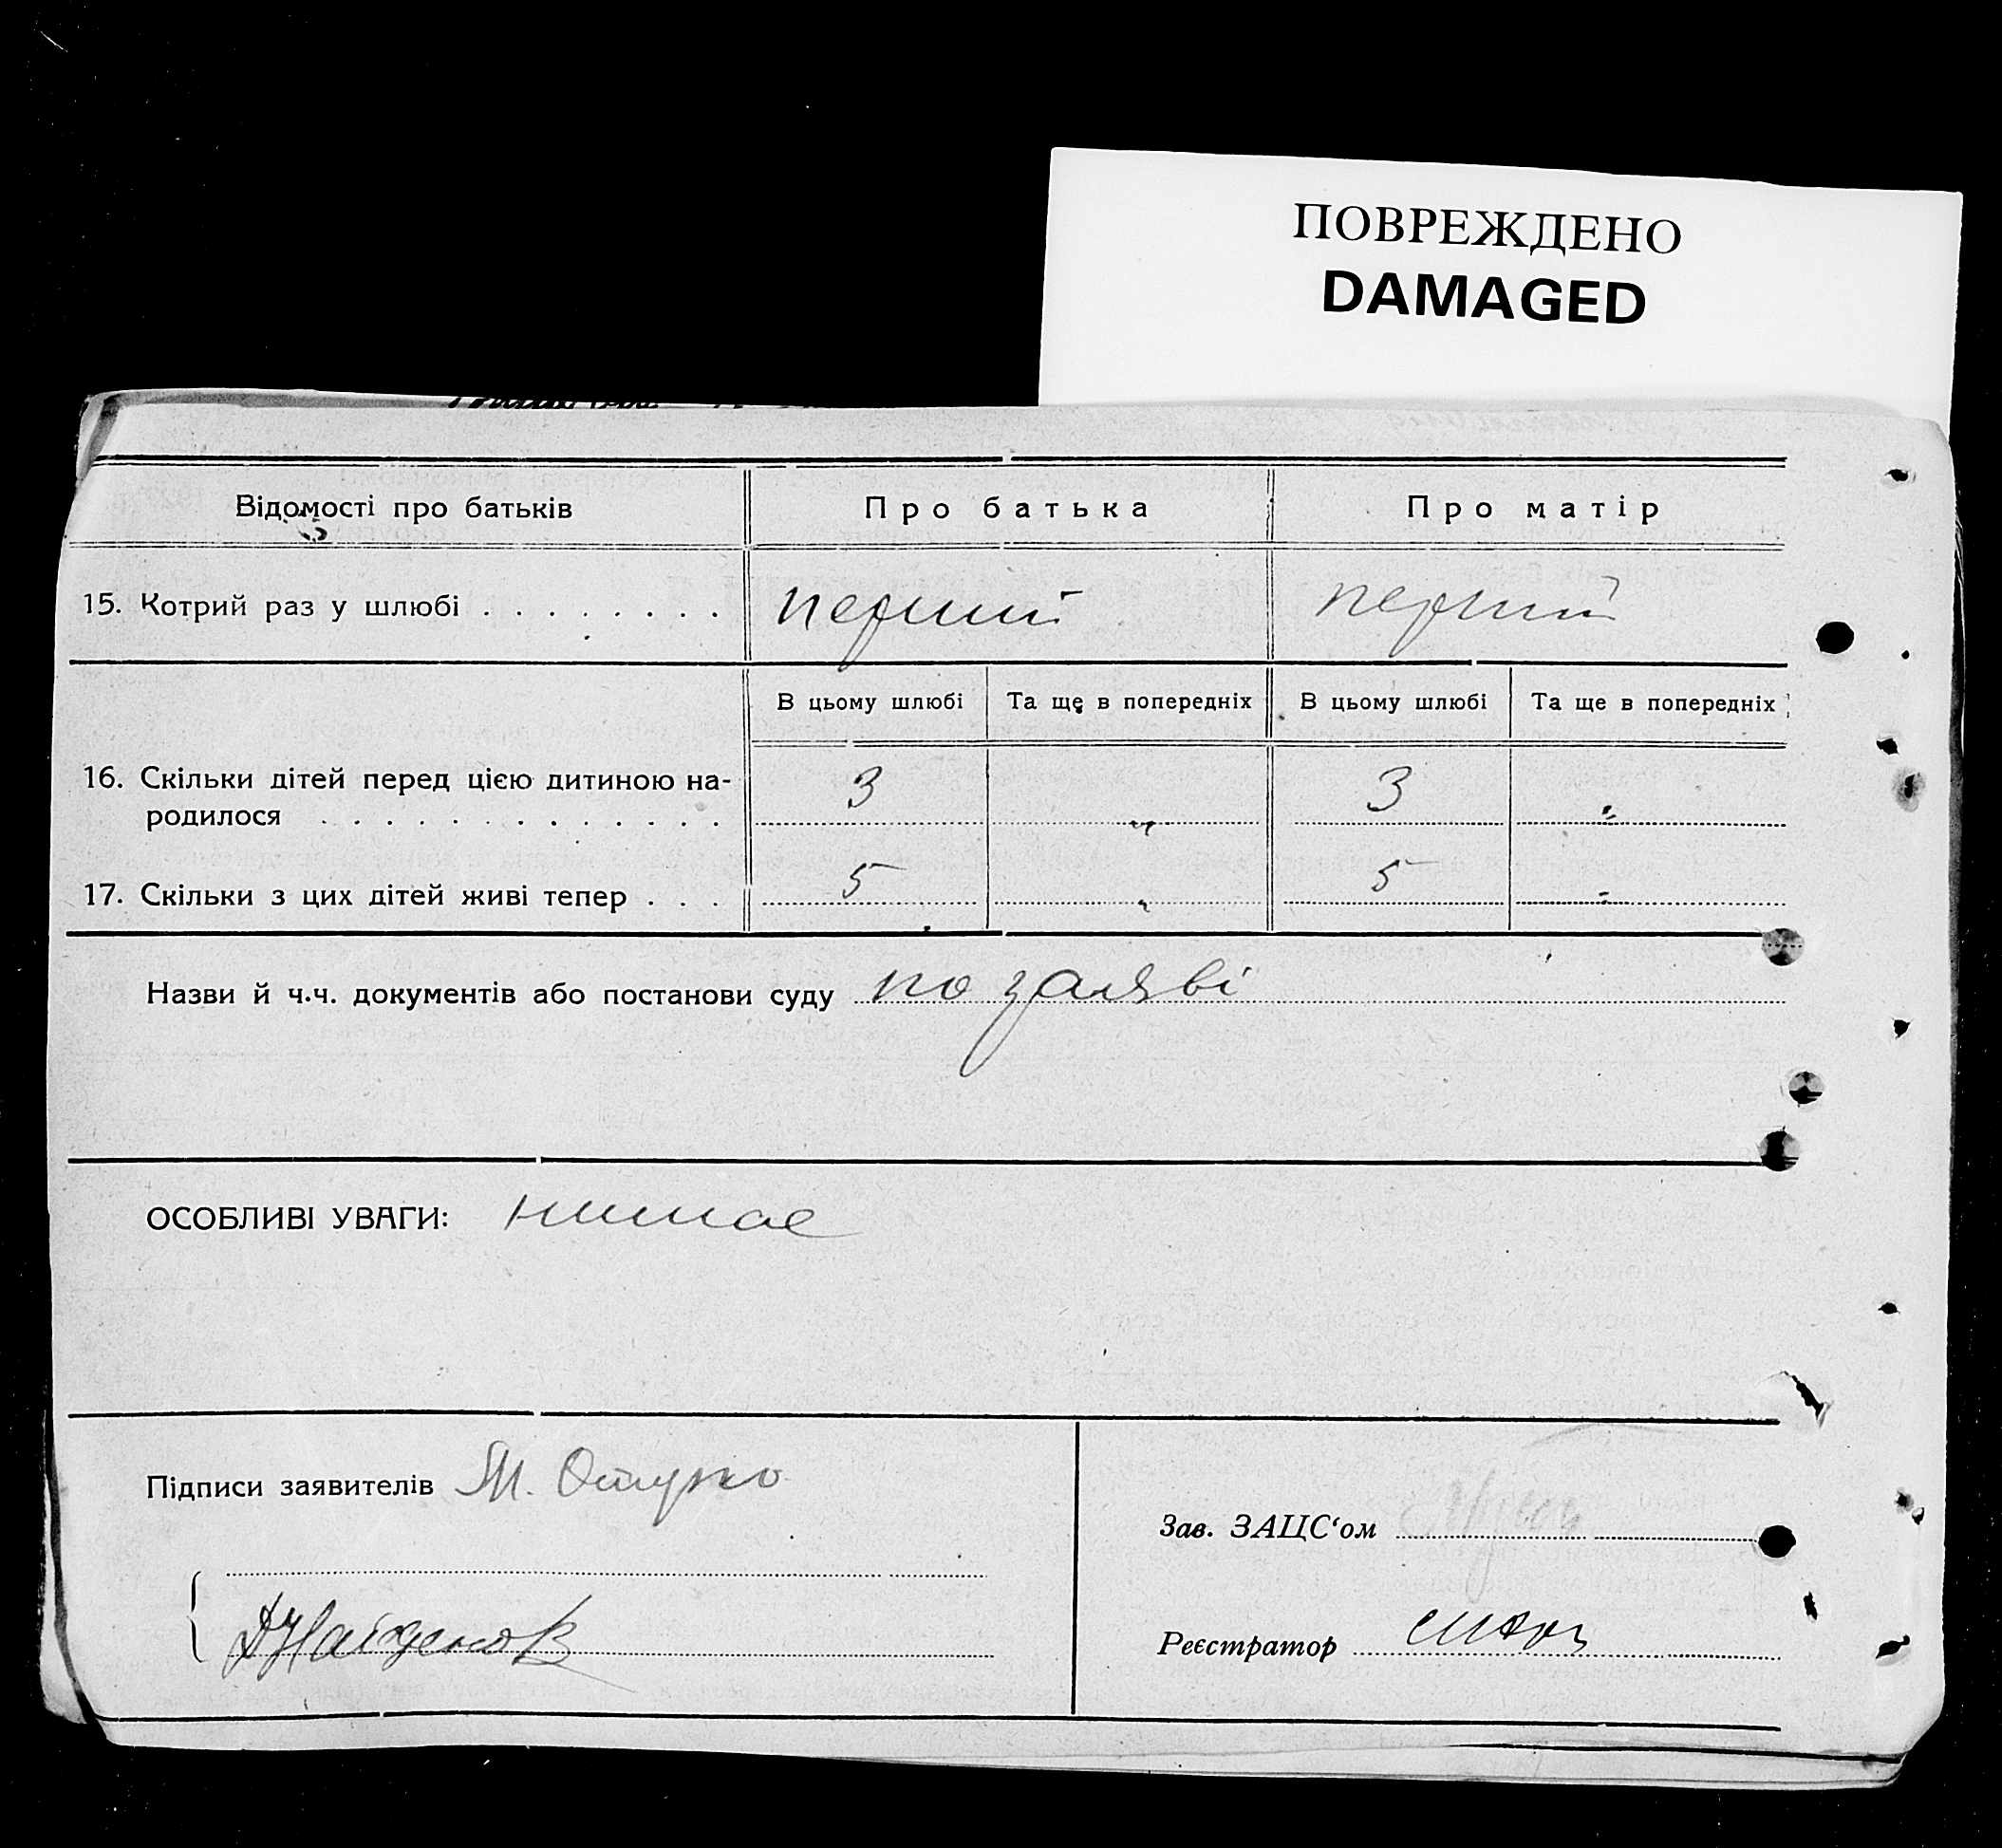 ПОВРЕЖДЕНО
DAMAGED
Відомості про батьків Про батька Про матір
15. Котрий раз у шлюбі . . . . . . . . перший перший
В цьому шлюбі Та ще в попередніх В цьому шлюбі Та ще в попередніх
16. Скільки дітей перед цією дитиною на-
родилося . . . . . . . . . . . . . 3 „ 3 „
17. Скільки з цих дітей живі тепер . . . 5 „ 5 „
Назви й ч.ч. документів або постанови суду по заяві
ОСОБЛИВІ УВАГИ: нимае
Підписи заявителів М.
Зав. ЗАЦС‘ом
Реєстратор